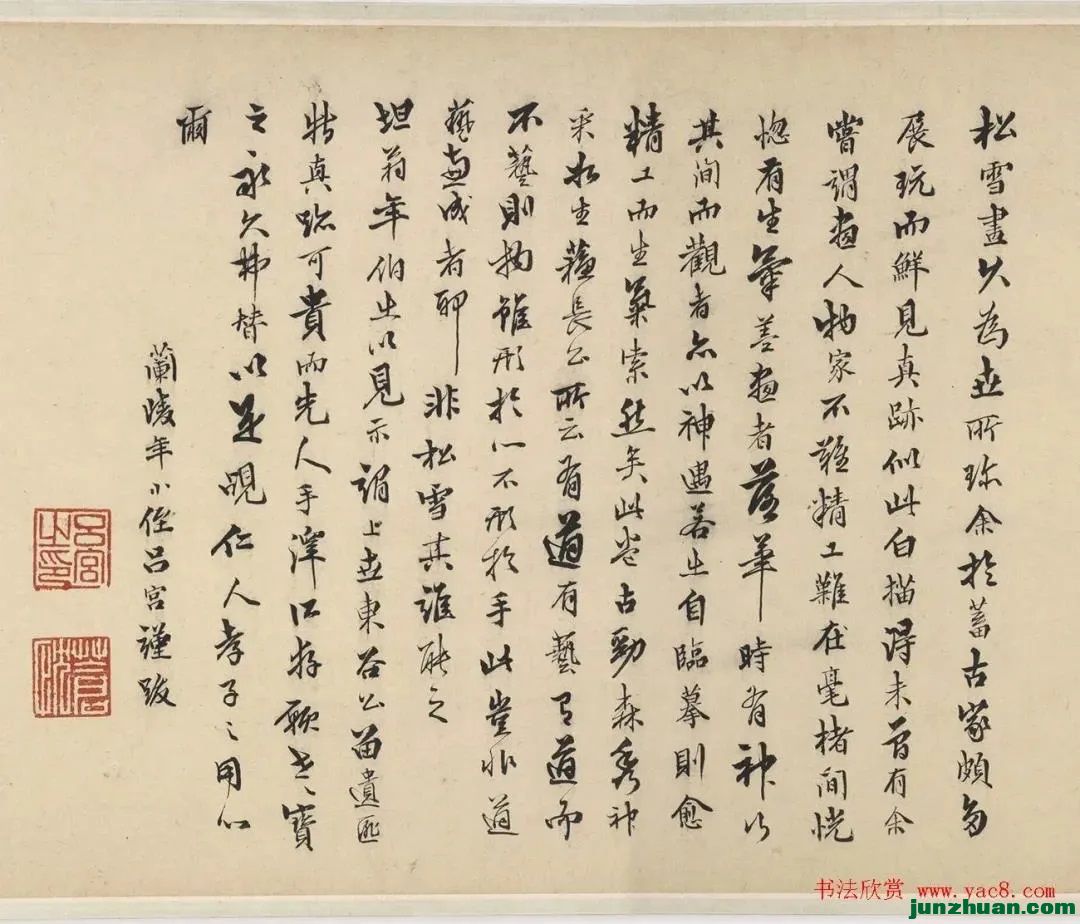 松雪畫久為世所珍余於蓄古家頗多
展玩而鮮見真跡似此白描得未曾有余
嘗謂畫人物家不難精工難在毫楮間恍
惚有生氣善畫者落筆時有神以
其間而觀者亦以神遇若止自臨摹則愈
精工而生氣索然矣此卷古勁森秀神
采如生蘇長公所云有道有藝有道而
不藝則物雖形於心不形於手此豈非道
藝兩成者耶非松雪其誰能之
坦翁年伯出以見示謂上世東谷公留遺匪
特真跡可貴而先人手澤口存願世世寶
之永久弗替以是覘仁人孝子之用心
爾
蘭陵年小侄呂宮謹跋
呂宮之印
書法欣赏 www.yac8.com
junzhuan.com